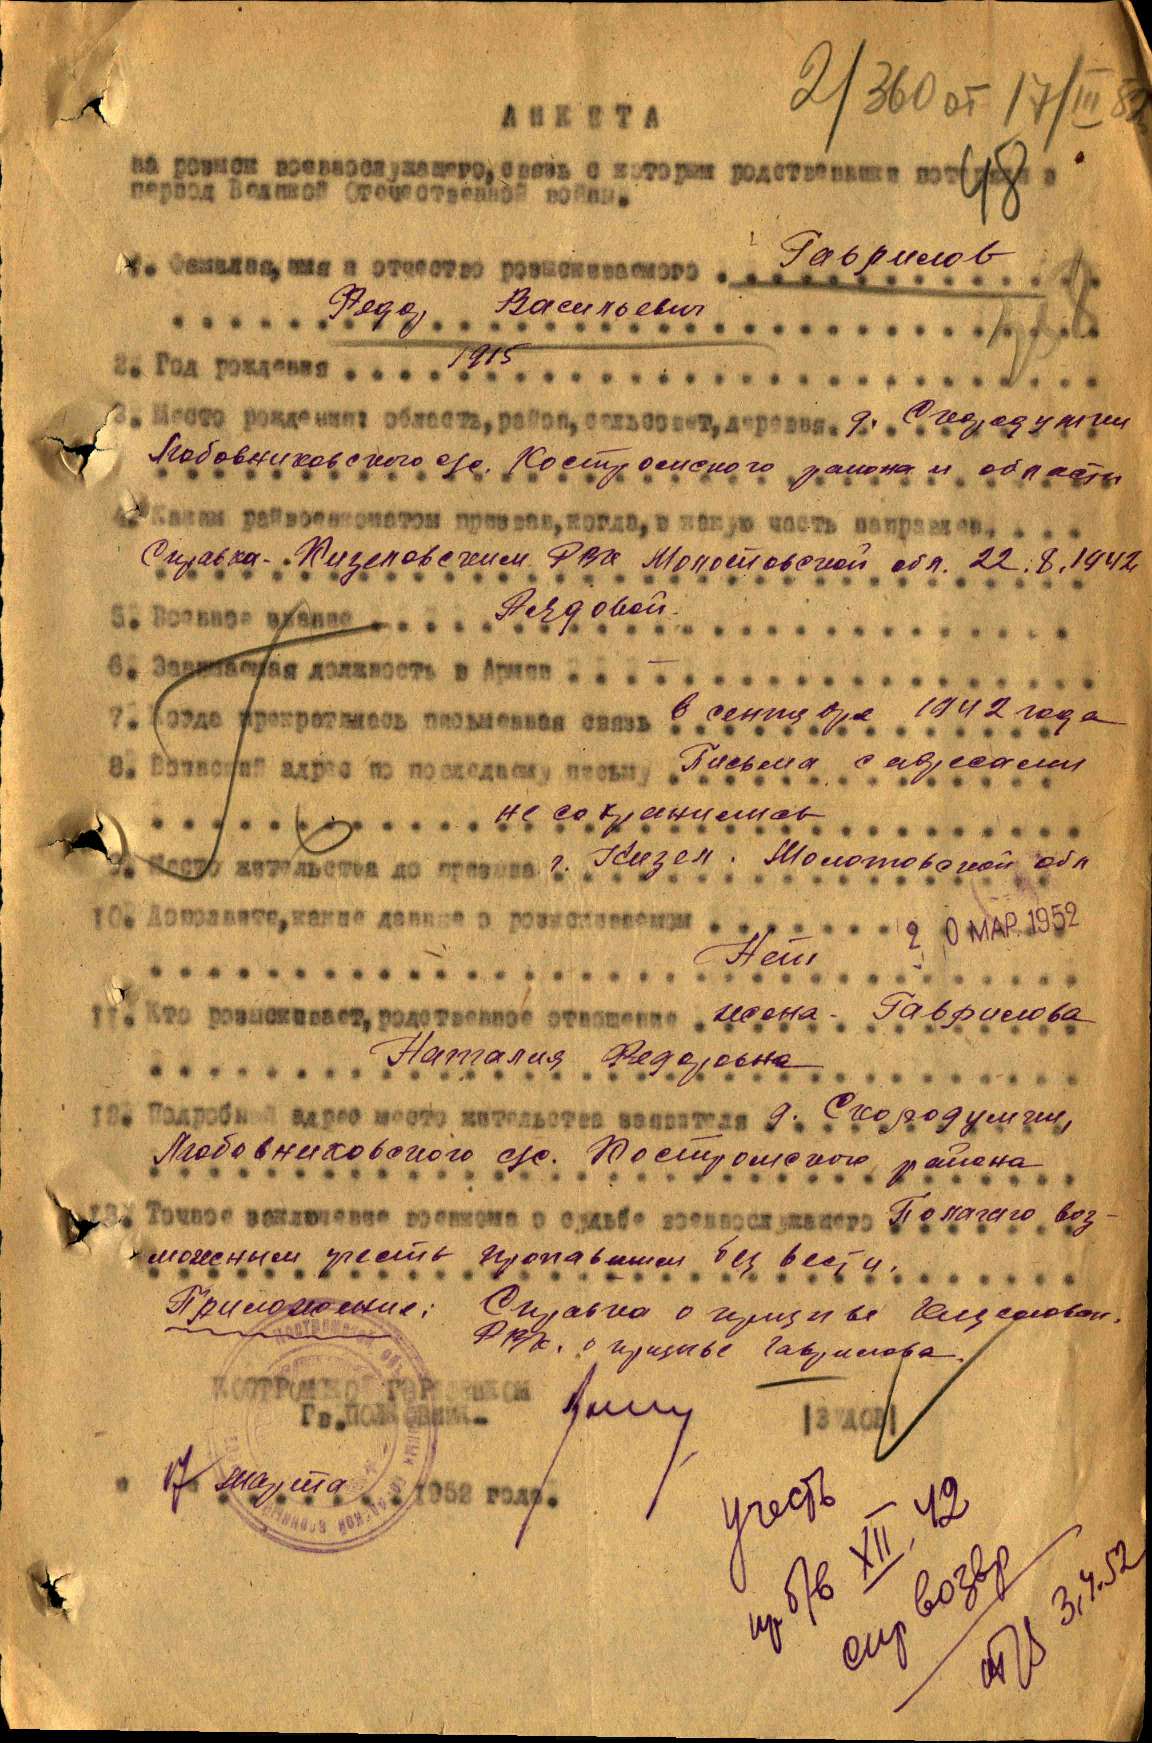 2/360 от 17/III 52
АНКЕТА
48
на розыск военнослужащего, связь с которым родственники потеряли в
период Великой Отечественной войны.
1. Фамилия, имя и отчество розыскиваемого Гаврилов
Федор Васильевич
2. Год рождения 1915
3. Место рождения: область, район, сельсовет, деревня. д. Скородумки
Любовниковского с/с. Костромского района и области
4. Каким райвоенкоматом призван, когда, в какую часть направлен.
Справка - Кизеловским РВК Молотовской обл. 22.8.1942
5. Военное звание Рядовой.
6. Занимаемая должность в Армии —
7. Когда прекратилась письменная связь в сентябре 1942 года
8. Воинский адрес по последнему письму Письма с адресами
не сохранились
9. Место жительства до призыва г. Кизел. Молотовской обл
10. Дополните, какие данные о розыскиваемом
Нет
20 МАР. 1952
11. Кто розыскивает, родственное отношение жена - Гаврилова
Наталия Федоровна
12. Подробный адрес место жительства заявителя д. Скородумки,
Любовниковского с/с. Костромского района
13. Точное заключение военкома о судьбе военнослужащего Полагаю воз-
можным учесть пропавшим без вести.
Приложение: Справка о призыве Кизеловск.
РВК. о призыве Гаврилова.
КОСТРОМСКОЙ ГОРВОЕНКОМ
Гв. ПОЛКОВНИК- |ЗУДОВ|
17 марта 1952 года.
учесть
пр б/в XII.42
спр возвр
3.4.52